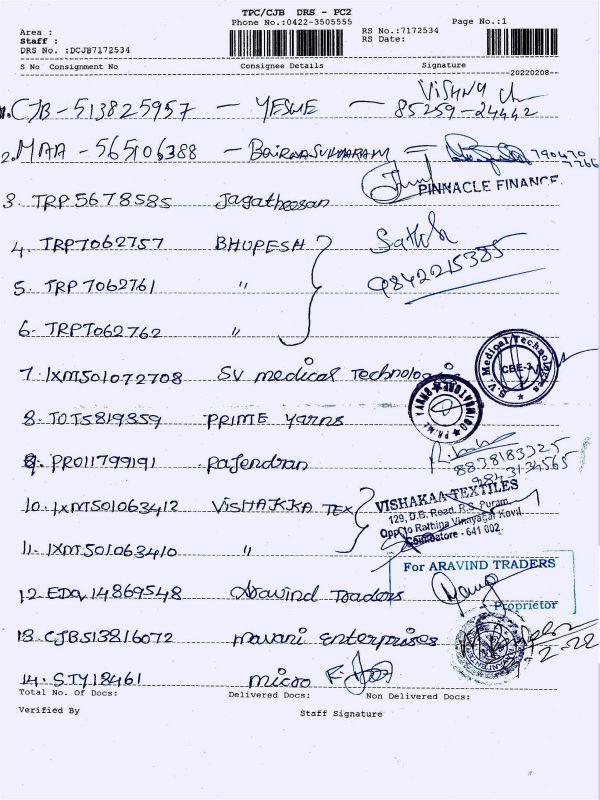 TPC/CJB DRS - PC2
Phone No.:0422-3505555 Page No.:1
Area :
Staff :
DRS No. :DCJB7172534
RS No.:7172534
RS Date:
S No Consignment No Consignee Details Signature
20220208
1. CJB-513825957 - YESWE - VISHNU
85259-24442
2. MAA-565106388 - 790470
7266
PINNACLE FINANCE
3 TRP5678585 Jagatheesan
4. TRP7062757 BHUPESH Satish
9842215385
5. TRP 7062761 "
6. TRP7062762 "
7. IXM501072708 SV medical Technologies
S.V. Medical Technologies
CBE-3
8. TOT5819359 PRIME Yarns
9. PRO11799191 Rajendran
8838183325
9843134565
10. IXM501063412 VISHAKKA TEX
VISHAKAA TEXTILES
129, D.B. Road, R.S. Puram,
Opp. to Rathina Vinayagar Kovil
Coimbatore - 641 002.
11. IXM501063410 "
For ARAVIND TRADERS
12. EDQ14869548 Aravind Traders
Proprietor
13. CJB513816072 mavani enterprises
14. STY18461 micro
Total No. Of Docs: Delivered Docs: Non Delivered Docs:
Verified By Staff Signature